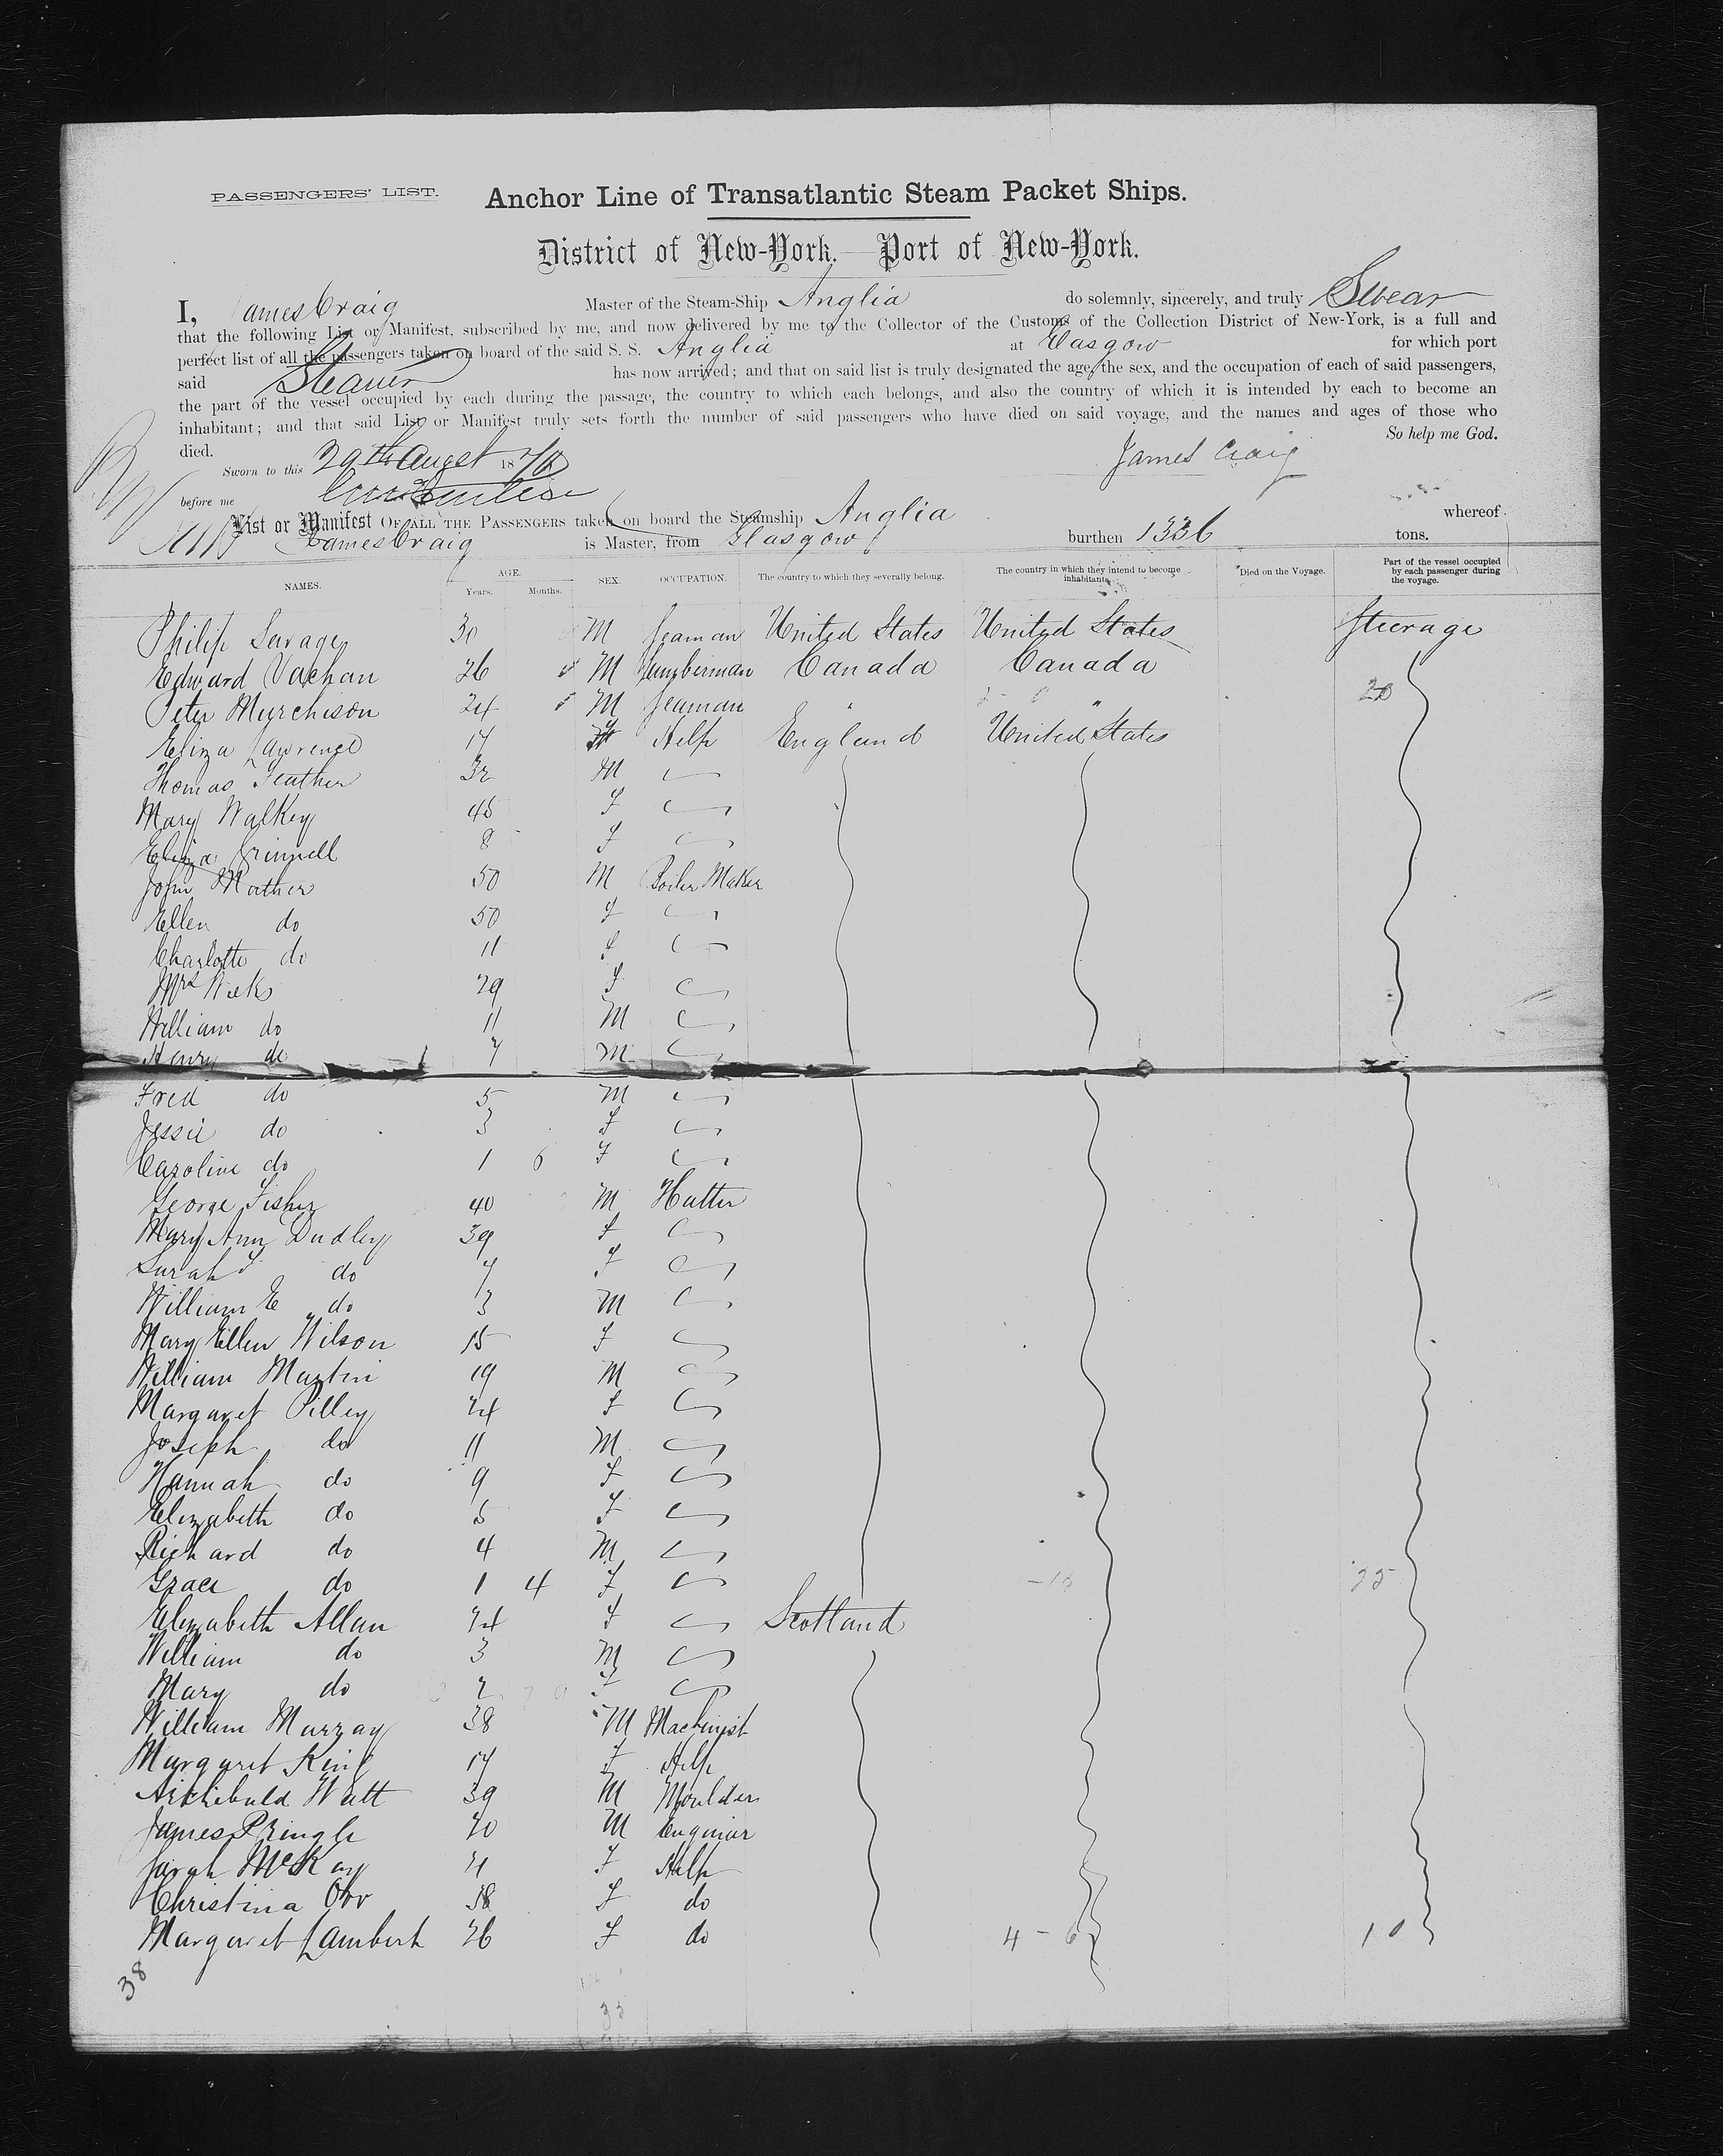 PASSENGERS' LIST. Anchor Line of Transatlantic Steam Packet Ships.
District of New-York. — Port of New-York.
I, James Craig Master of the Steam-Ship Anglia do solemnly, sincerely, and truly Swear
that the following List or Manifest, subscribed by me, and now delivered by me to the Collector of the Customs of the Collection District of New-York, is a full and
perfect list of all the passengers taken on board of the said S. S. Anglia at Glasgow for which port
said Steamer has now arrived; and that on said list is truly designated the age, the sex, and the occupation of each of said passengers,
the part of the vessel occupied by each during the passage, the country to which each belongs, and also the country of which it is intended by each to become an
inhabitant; and that said List or Manifest truly sets forth the number of said passengers who have died on said voyage, and the names and ages of those who
died. So help me God.
Sworn to this 29th August 1870 James Craig
before me
List or Manifest OF ALL THE PASSENGERS taken on board the Steamship Anglia whereof
James Craig is Master, from Glasgow burthen 1336 tons.
NAMES. AGE. Years. Months. SEX. OCCUPATION. The country to which they severally belong. The country in which they intend to become inhabitants. Died on the Voyage. Part of the vessel occupied by each passenger during the voyage.
Philip Savage 30 M Seaman United States United States Steerage
Edward Vachan 26 M Lumberman Canada Canada
Peter Murchison 24 M Seaman " " 20
Eliza Lawrence 17 F Help England United States
Thomas Feather 32 M
Mary Walkey 45 F
Eliza Grinnell 8 F
John Mather 50 M Boiler Maker
Ellen do 50 F
Charlotte do 11 F
Mrs Weeks 29 F
William do 11 M
Henry do 7 M
Fred do 5 M
Jessie do 3 F
Caroline do 1 6 F
George Fisher 40 M Hatter
Mary Ann Dudley 39 F
Sarah do 7 F
William E do 3 M
Mary Ellen Wilson 15 F
William Martin 19 M
Margaret Pilley 24 F
Joseph do 11 M
Hannah do 9 F
Elizabeth do 5 F
Richard do 4 M
Grace do 1 4 F
Elizabeth Allan 24 F Scotland
William do 3 M
Mary do 2 F
William Murray 38 M Machinist
Margaret King 17 F Help
Archibald Watt 39 M Moulder
James Pringle 20 M Enginier
Sarah McKay 21 F Help
Christina Orr 38 F do
Margaret Lambert 26 F do 4 - 6 10
38
33